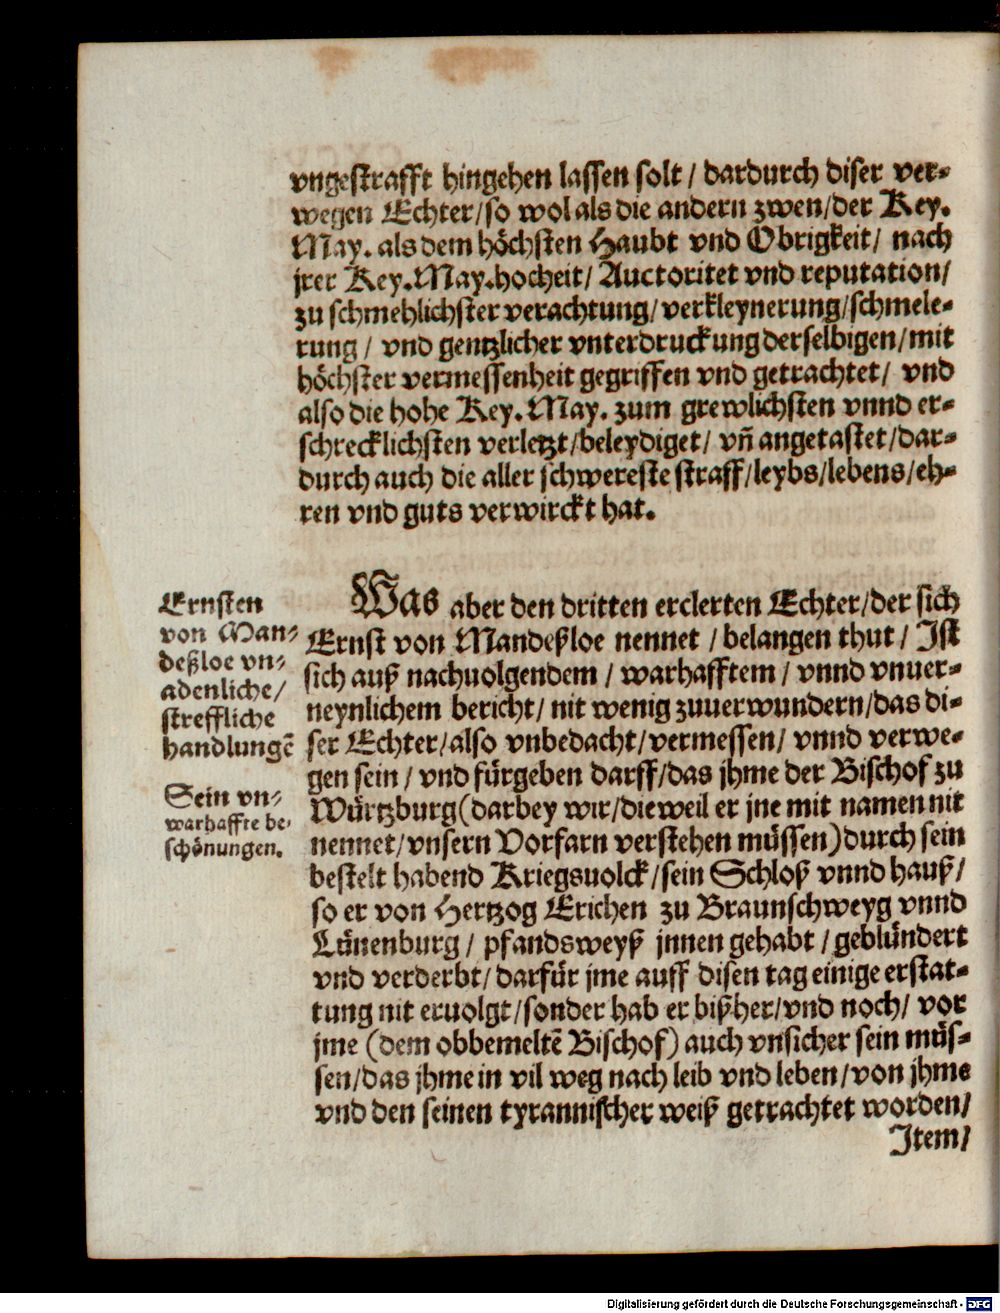 vngestrafft hingehen lassen solt / dardurch diser ver-
wegen Echter/so wol als die andern zwen/der Key.
May. als dem höchsten Haubt vnd Obrigkeit/ nach
jrer Key.May.hocheit/ Auctoritet vnd reputation/
zu schmehlichster verachtung/verkleynerung/schmele-
rung / vnd gentzlicher vnterdruckung derselbigen/mit
höchster vermessenheit gegriffen vnd getrachtet/ vnd
also die hohe Key.May. zum grewlichsten vnnd er-
schrecklichsten verletzt/beleydiget/ vñ angetastet/dar-
durch auch die aller schwereste straff/leybs/lebens/eh-
ren vnd guts verwirckt hat.
Ernsten
von Man-
deßloe vn-
adenliche/
streffliche
handlungē
Sein vn-
warhaffte be-
schönungen.
Was aber den dritten erclerten Echter/der sich
Ernst von Mandeßloe nennet / belangen thut / Ist
sich auß nachuolgendem / warhafftem / vnnd vnuer-
neynlichem bericht/ nit wenig zuuerwundern/das di-
ser Echter/also vnbedacht/vermessen/ vnnd verwe-
gen sein / vnd fürgeben darff/das jhme der Bischof zu
Würtzburg(darbey wir/dieweil er jne mit namen nit
nennet/vnsern Vorfarn verstehen müssen)durch sein
bestelt habend Kriegsuolck/sein Schloß vnnd hauß/
so er von Hertzog Erichen zu Braunschweyg vnnd
Lünenburg / pfandsweyß jnnen gehabt / geblündert
vnd verderbt/darfür jme auff disen tag einige erstat-
tung nit eruolgt/sonder hab er bißher/vnd noch/ vor
jme (dem obbemeltē Bischof) auch vnsicher sein müs-
sen/das jhme in vil weg nach leib vnd leben/von jhme
vnd den seinen tyrannischer weiß getrachtet worden/
Item/
Digitalisierung gefördert durch die Deutsche Forschungsgemeinschaft - DFG